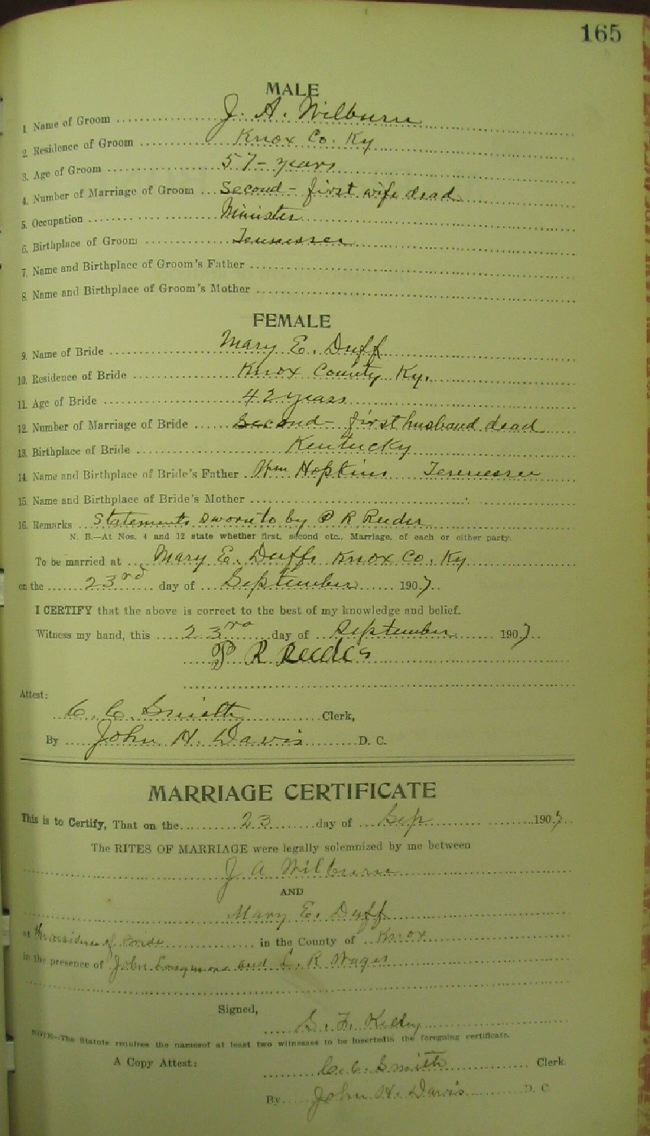 165
MALE
1. Name of Groom J. A. Wilburn
2. Residence of Groom Knox Co. Ky
3. Age of Groom 57 - years
4. Number of Marriage of Groom Second - first wife dead
5. Occupation Minister
6. Birthplace of Groom Tennessee
7. Name and Birthplace of Groom's Father
8. Name and Birthplace of Groom's Mother
FEMALE
9. Name of Bride Mary E. Duff
10. Residence of Bride Knox County Ky.
11. Age of Bride 42 years
12. Number of Marriage of Bride Second - first husband dead
13. Birthplace of Bride Kentucky
14. Name and Birthplace of Bride's Father Wm Hopkins Tennessee
15. Name and Birthplace of Bride's Mother
16. Remarks Statements sworn to by P R Reeder
N. B.—At Nos. 4 and 12 state whether first, second etc., Marriage, of each or either party.
To be married at Mary E. Duffs Knox Co. Ky
on the 23rd day of September 1907
I CERTIFY that the above is correct to the best of my knowledge and belief.
Witness my hand, this 23rd day of September 1907
P R
Attest:
C. C. Smith Clerk,
By John H. Davis D. C.
MARRIAGE CERTIFICATE
This is to Certify, That on the 23 day of Sep 1907
The RITES OF MARRIAGE were legally solemnized by me between
J A Wilburn
AND
Mary E. Duff
at the residence of in the County of Knox
in the presence of John and L. R
Signed,
NOTE—The Statute requires the names of at least two witnesses to be inserted in the foregoing certificate.
A Copy Attest: C. C. Smith Clerk.
By John H. Davis D. C